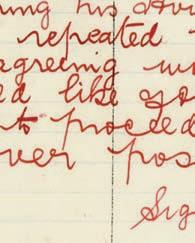 ing his
repeated
agreeing
ed like yo
to proceed
ver pos
Sig